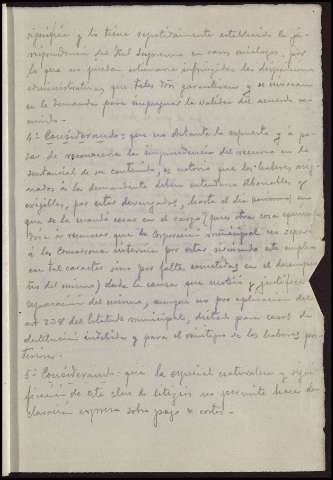 significa y lo tiene repetidamente establecido la ju-
risprudencia del Tral Supremo en casos análogos, por
lo que no pueden estimarse infringidas las disposiciones
administrativas que tales son garantizan y se invocan
en la demanda para impugnar la validez del acuerdo re-
currido.
4º Considerando: que no obstante lo expuesto y á pe-
sar de reconocerse la improcedencia del recurso en lo
sustancial de su contenido, es notorio que los haberes asig-
nados á la demandante deben estimarse abonables y
exigibles, por estar devengados, hasta el día en
que se la mandó cesar en el cargo, pues otra cosa equival-
dría á reconocer que la Corporación municipal no separó
á la Comadrona interina por estar sirviendo este empleo
con tal carácter sino por faltas cometidas en el desempe-
ño del mismo, dada la causa que motivó y justificó la
separación del mismo, aunque no por aplicación del
art 238 del Estatuto municipal, dictado para casos de
destitución indebida y para el reintegro de los haberes pos-
teriores.
5º Considerando que la especial naturaleza y signi-
ficación de esta clase de litigios no permite hacer de-
claración expresa sobre pago de costas.